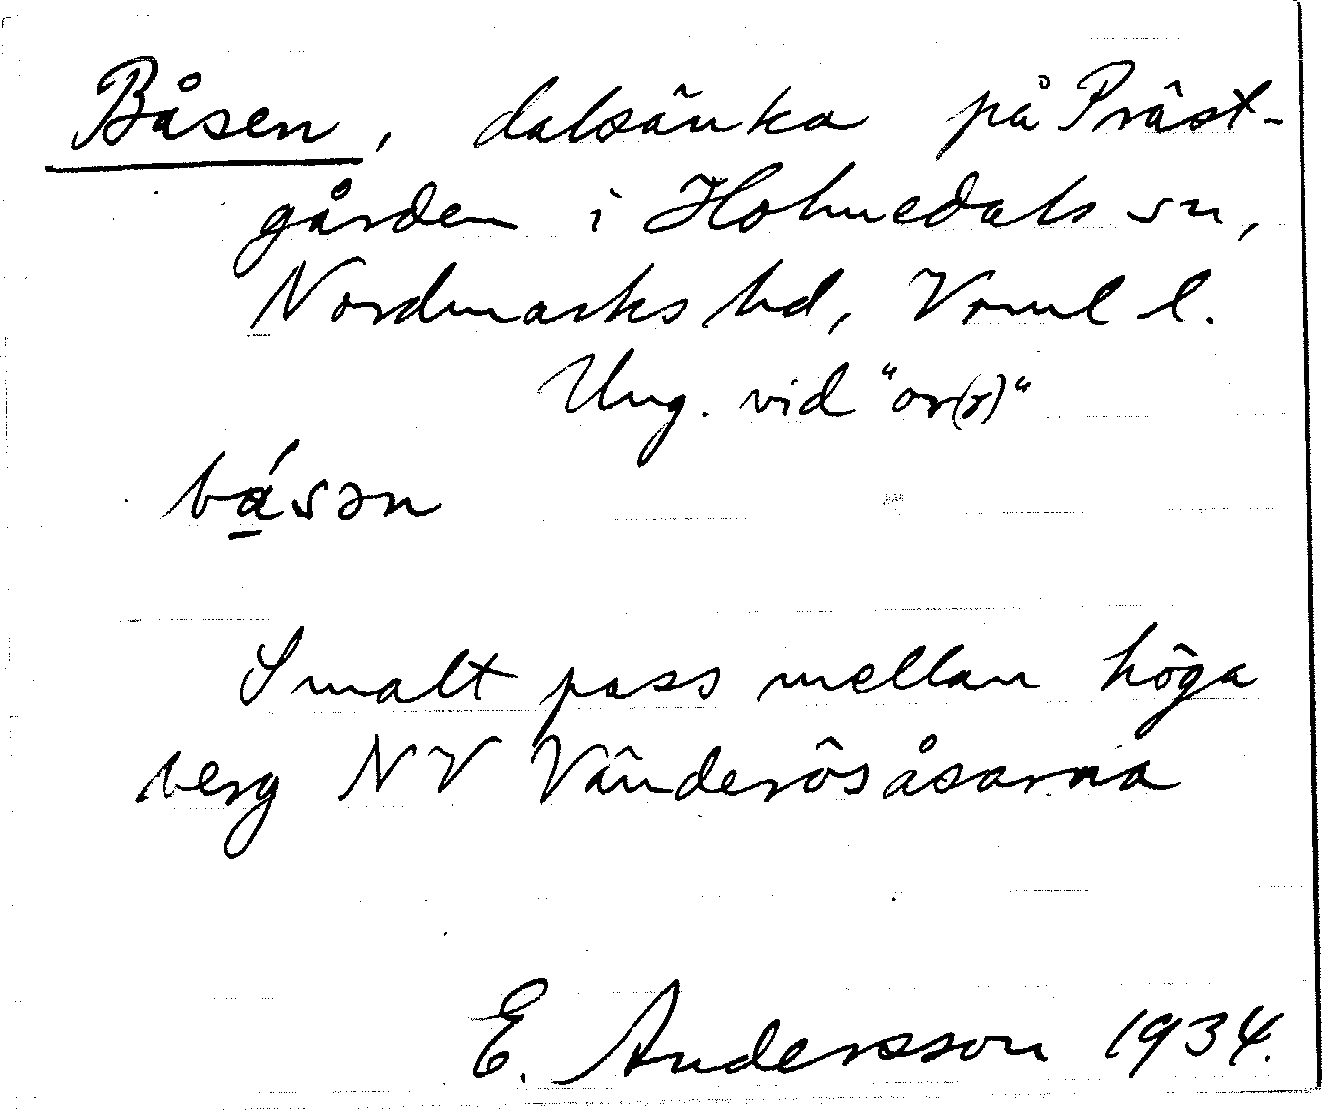 Båsen, dalsänka på Präst-
gården i Holmedals sn,
Nordmarks hd, Vrml l.
Ung. vid "or(r)"
bá̱sən
Smalt pass mellan höga
berg NV Vänderösåsarna
E. Andersson 1934.